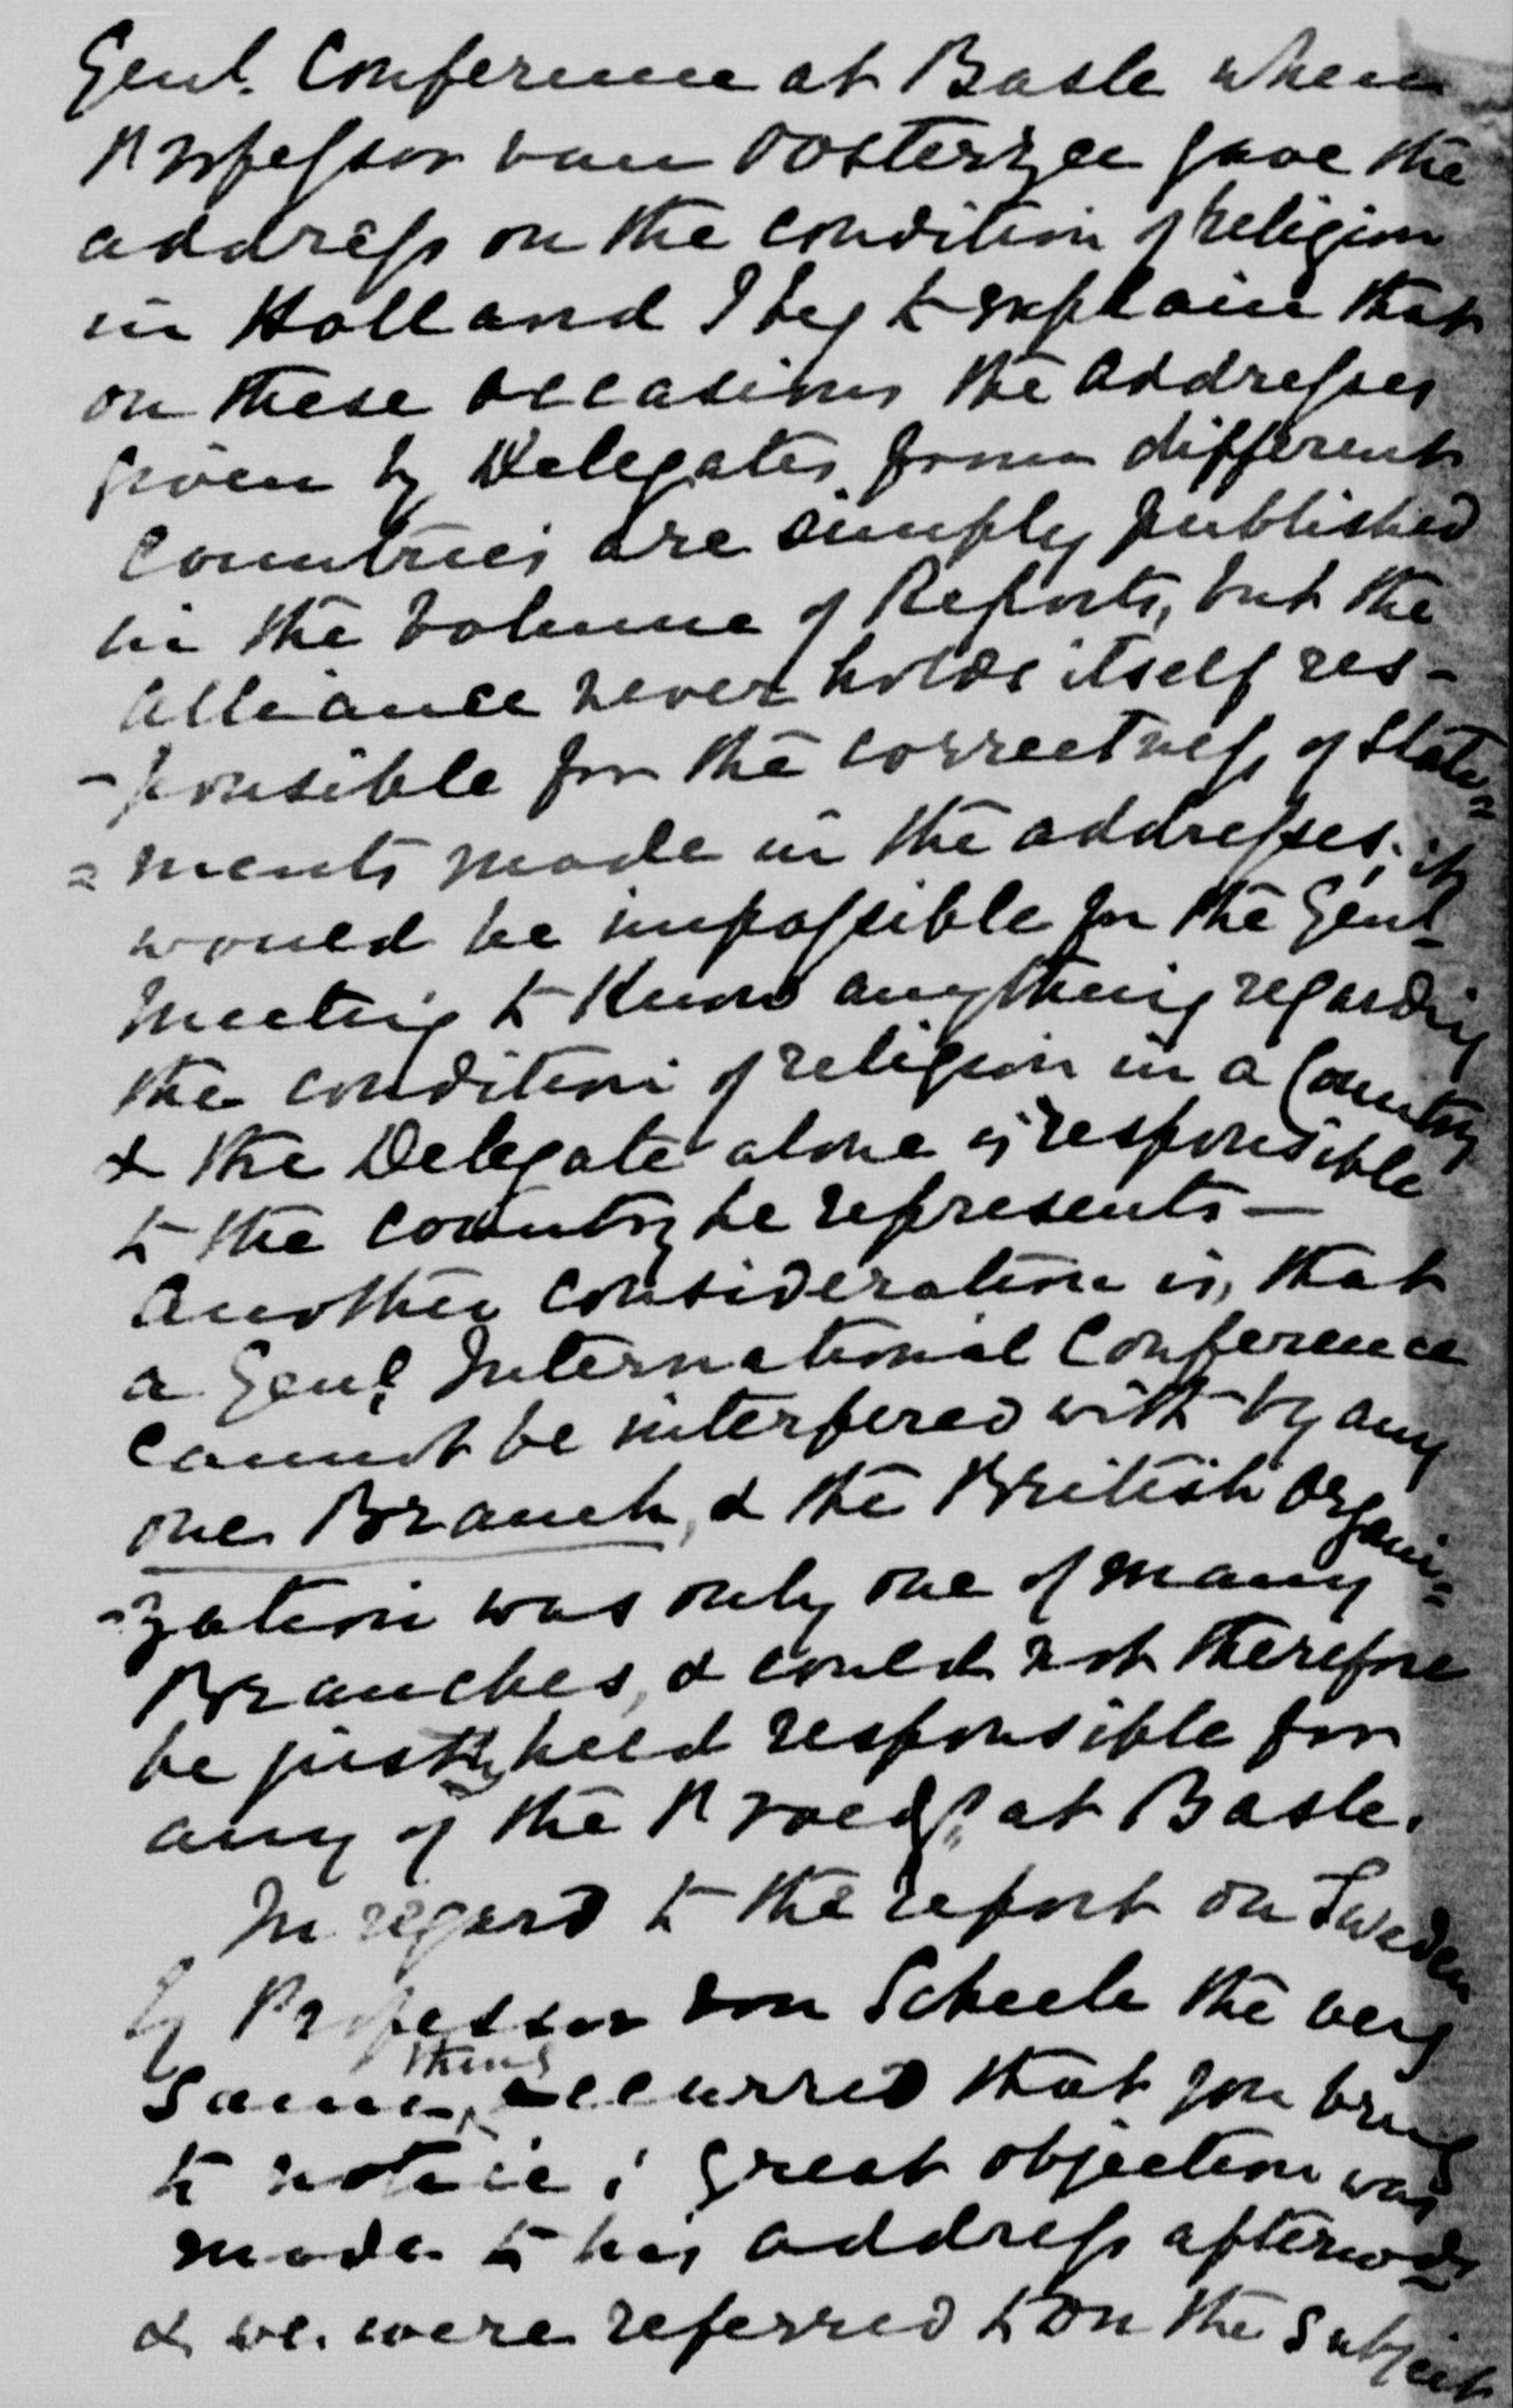 Genl. Conference at Basle when
Professor van Oosterzee gave the
address on the condition of religion
in Holland I beg to explain that
on these occasions the addresses
given by Delegates from different
Countries are simply published
in the Volume of Reports, but the
Alliance never holds itself res-
-ponsible for the correctness of State=
=ments made in the addresses; it
would be impossible for the Genl
Meeting to Know anything regarding
the condition of religion in a Country
& the Delegate alone is responsible
to the country he represents —
Another consideration is, that
a Genl. International Conference
cannot be interfered with by any
one Branch, & the British Organi=
=zation was only one of many
Branches, & could not therefore
be justly held responsible for
any of the Proedgs. at Basle.
In regard to the report on Sweden
by Professor von Scheele the very
same thing occurred that you bring
to notice; great objection was
made to his address afterwds
& we were referred to on the subject